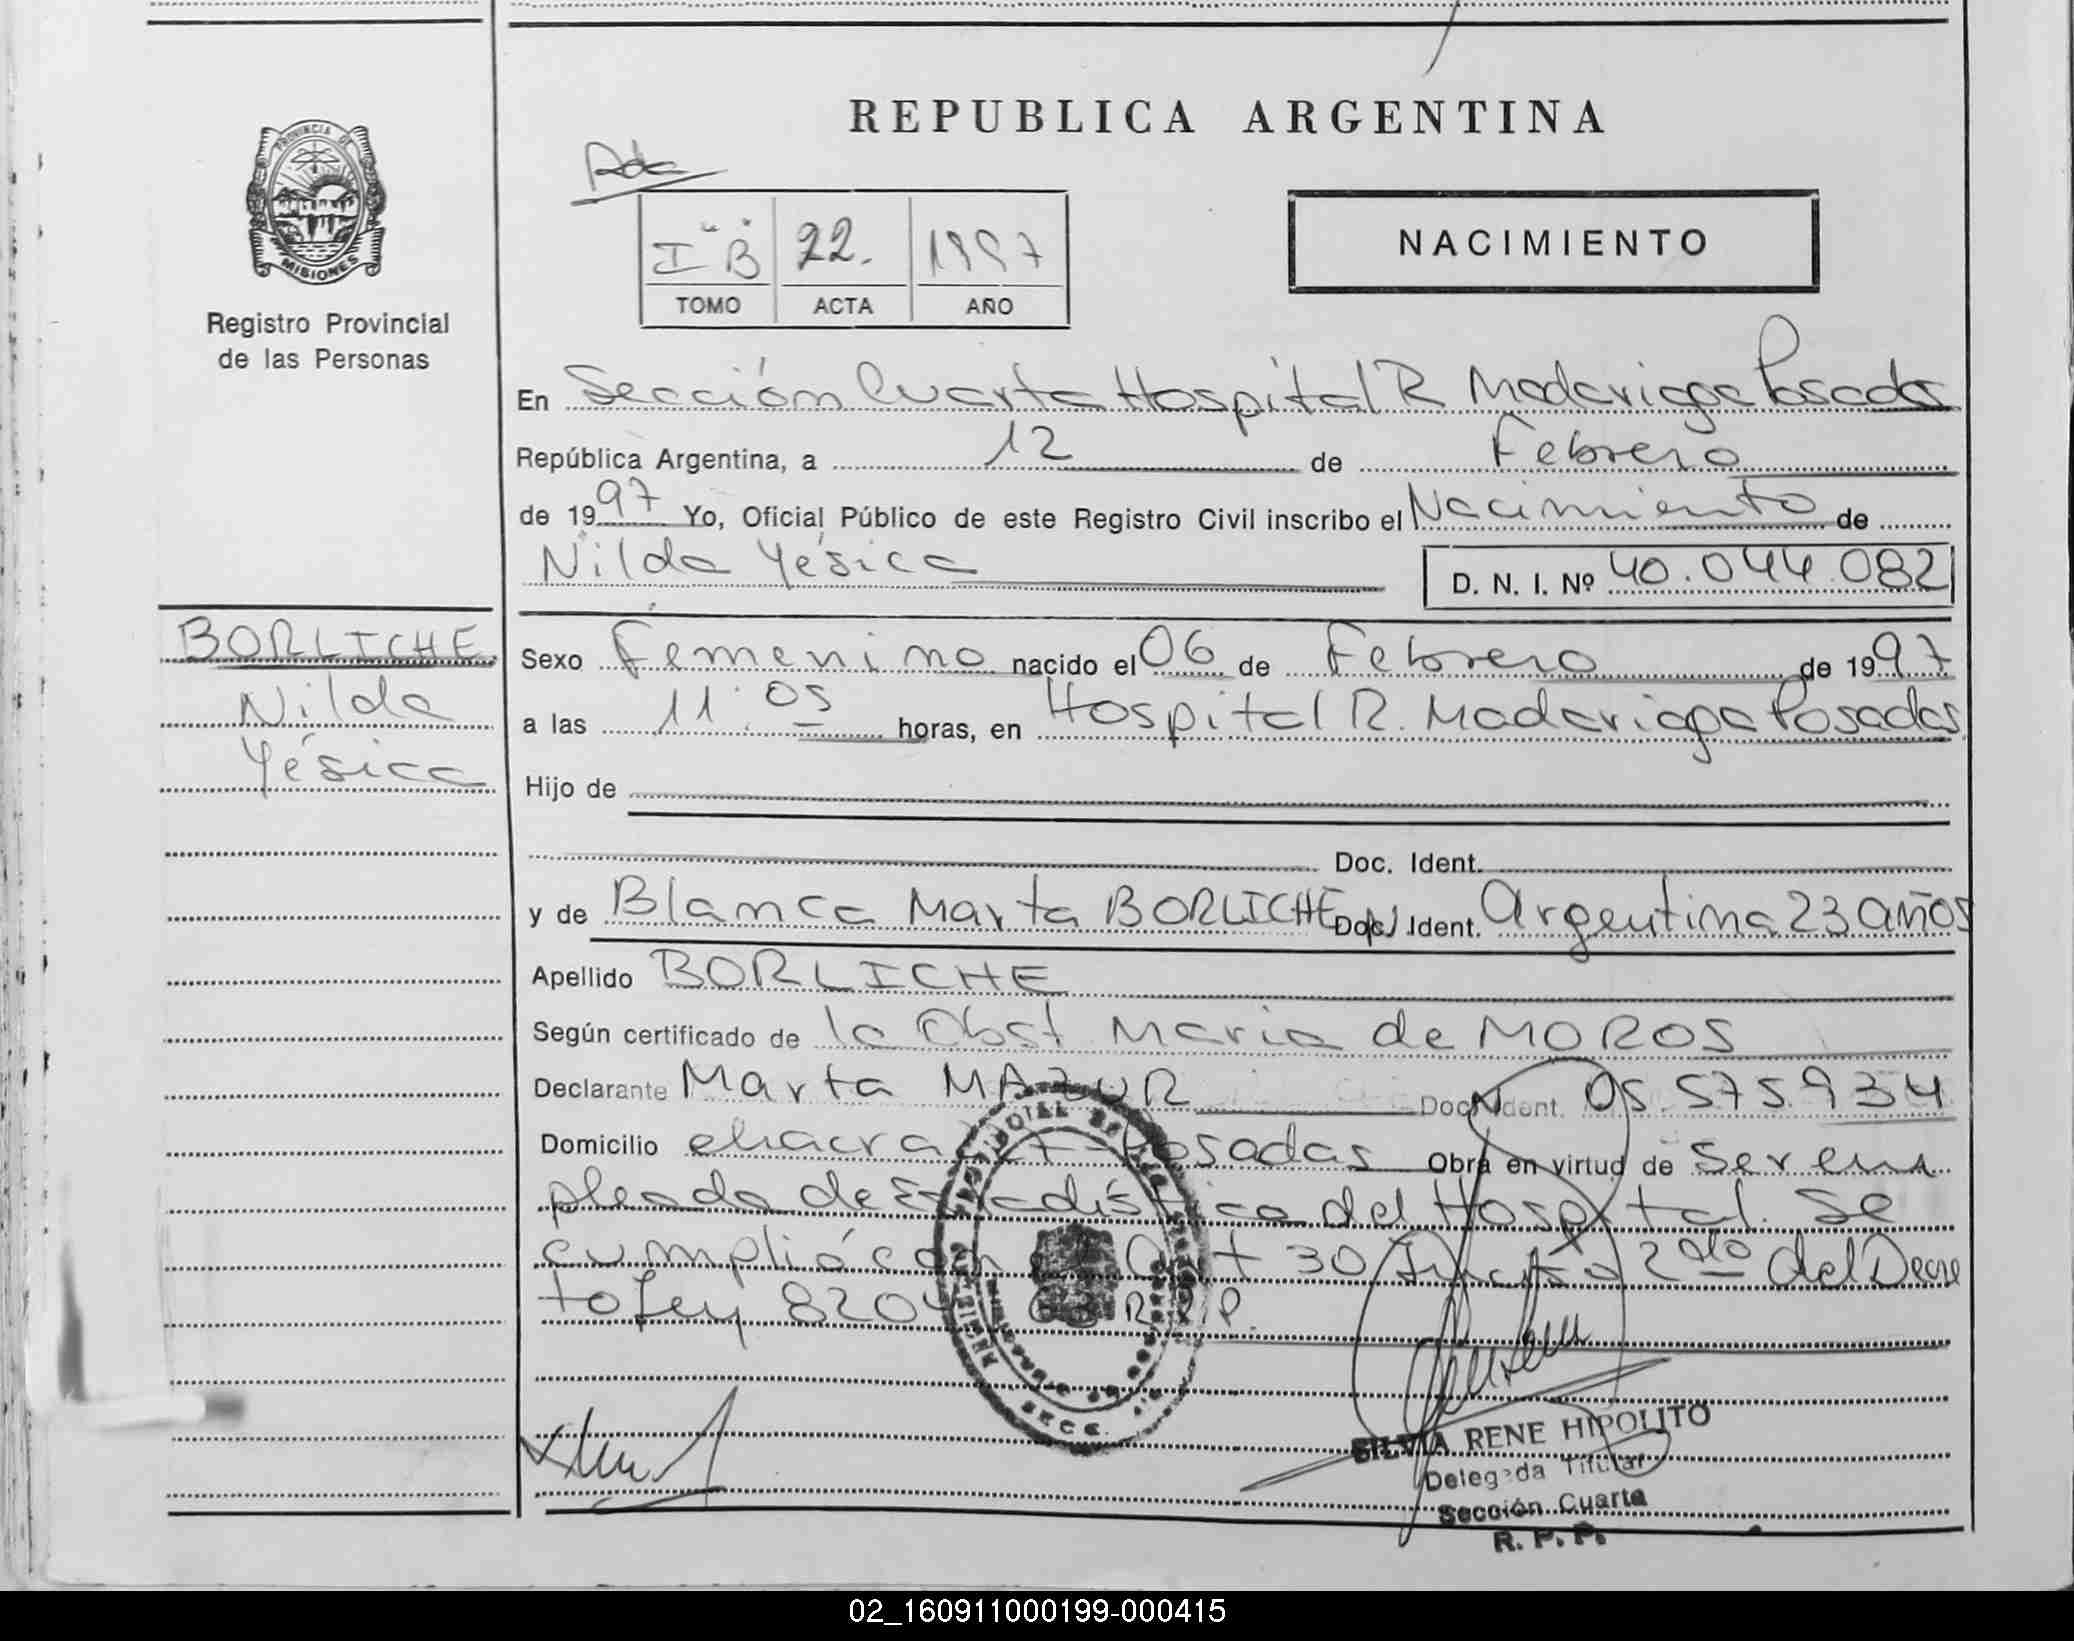 REPUBLICA ARGENTINA
PROVINCIA DE
MISIONES
Registro Provincial
de las Personas
I "B" 22. 1997
TOMO ACTA AÑO
NACIMIENTO
En Sección Cuarta Hospital R Madariaga Posadas
República Argentina, a 12 de Febrero
de 1997 Yo, Oficial Público de este Registro Civil inscribo el Nacimiento de
Nilda Yésica D. N. I. Nº 40.044.082
BORLICHE
Nilda
Yésica
Sexo Femenino nacido el 06 de Febrero de 1997
a las 11:05 horas, en Hospital R. Madariaga Posadas
Hijo de
Doc. Ident.
y de Blanca Marta BORLICHE Doc. Ident. Argentina 23 años
Apellido BORLICHE
Según certificado de la Obst Maria de MOROS
Declarante Marta MAZUR Doc. Ident. 05.575.934
Domicilio chacra Posadas Obra en virtud de Ser em
pleada de Estadistica del Hospital. Se
cumplió con el Art 30 Inciso 2do del Decre
to Ley 8204 63 R.P.P.
SILVIA RENE HIPOLITO
Delegada Titular
Sección Cuarta
R. P. P.
02_160911000199-000415